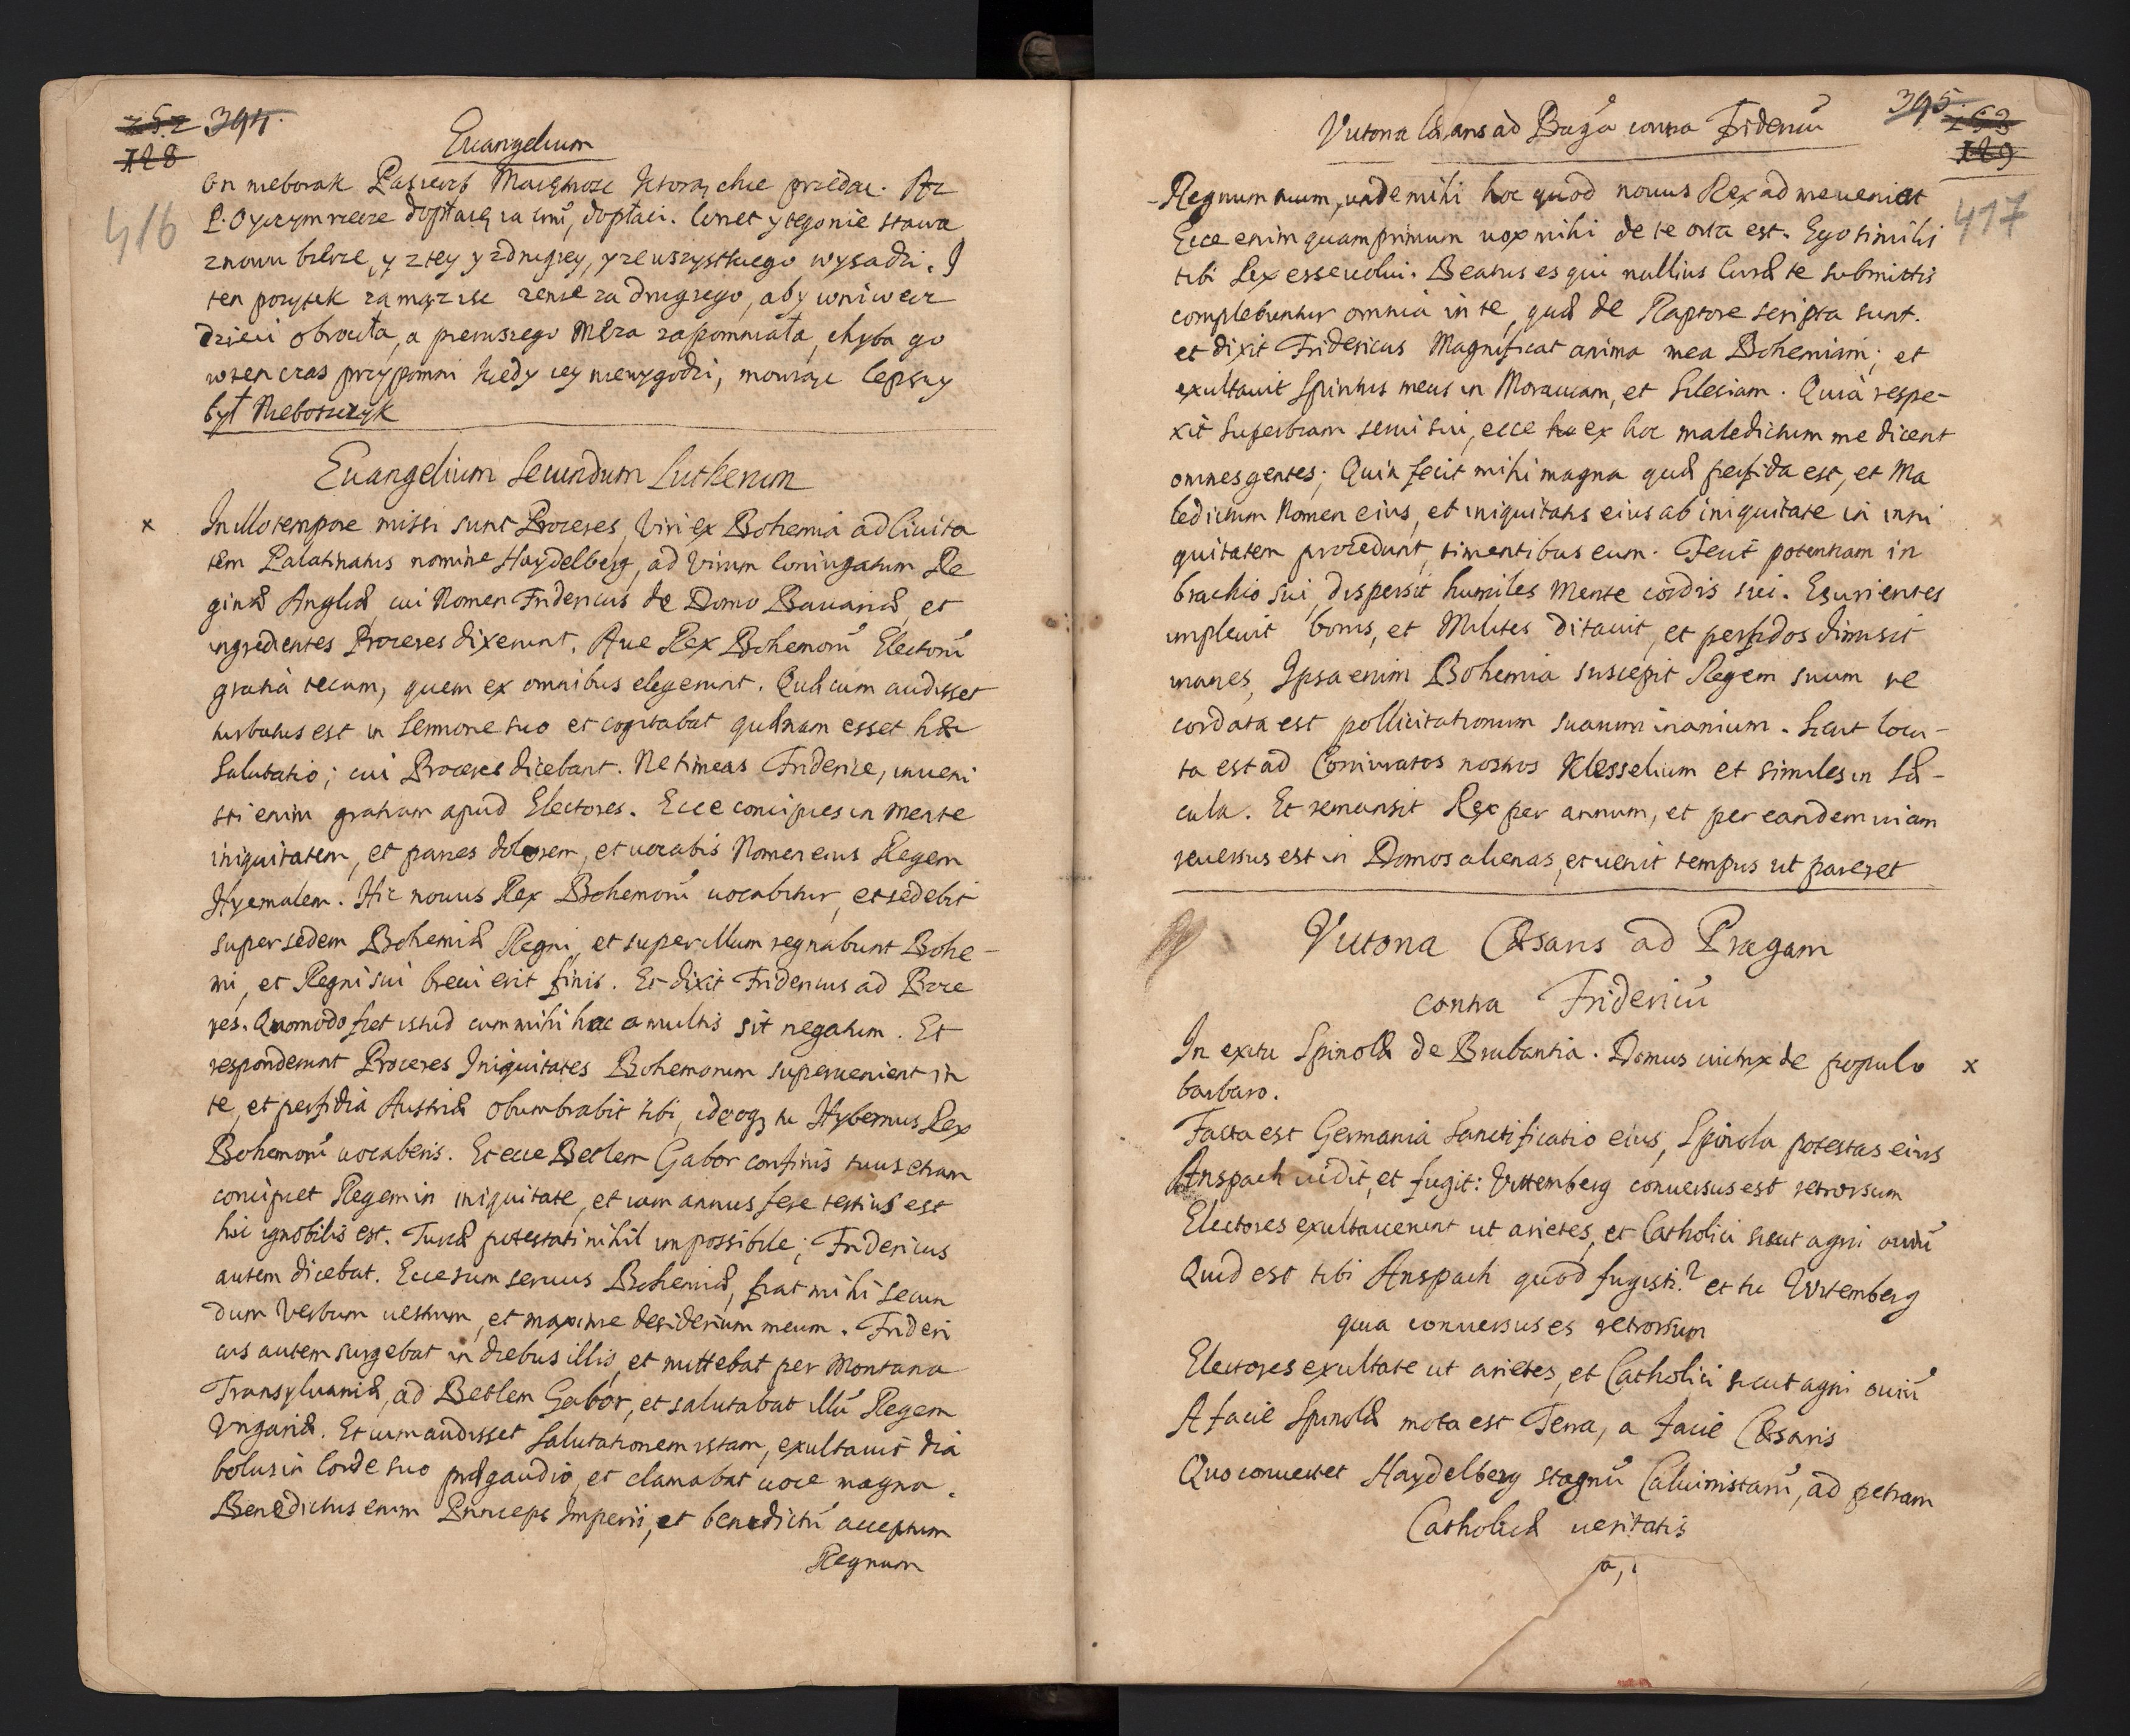 252 394.
128
416
Euangelium
on nieborak Pasierb Maiętnosc ktorą chce przedac. Az
P. Oyczym rzecze dopłacę ia imi, dopłaci. Const y tego nie stawa
znowu bierze, y z tey y z drugiey, y ze wszystkiego wysadzi. I
ten pozytek za mąz isc zenie za drugiego, aby wniwecz
dzieci obrocita, a pierwszego Męza zapomniała, chyba go
wten czas przypomni kiedy iey niewygodzi, mowiąc lepszy
był Nieboszczyk
Euangelium Secundum Lutherum
x In illo tempore missi sunt Proceres, Viri ex Bohemia ad Ciuita
tem Palatinatus nomine Haydelberg, ad Virum Coniugatum Re
ginæ Angliæ, cui Nomen Fridericus de Domo Bauariæ, et
ingredientes Proceres dixerunt. Aue Rex Bohemorũ Electorũ
gratia tecum, quem ex omnibus elegerunt. Qui cum audisset
turbatus est in Sermone suo et cogitabat quænam esset hæc
Salutatio; cui Proceres dicebant. Ne timeas Friderice, inueni
sti enim gratiam apud Electores. Ecce concipies in mente
iniquitatem, et paries dolorem, et uocabis Nomen eius Regem
Hyemalem. Hic nouus Rex Bohemorũ uocabitur, et sedebit
super sedem Bohemiæ Regni, et super illum regnabunt Bohe-
mi, et Regni sui breui erit finis. Et dixit Fridericus ad Proce
res. Quomodo fiet istud cum mihi hoc a multis sit negatum. Et
responderunt Proceres Iniquitates Bohemorum superuenient in
te, et perfidia Austriæ obumbrabit tibi, ideoq; tu Hybernus Rex
Bohemorũ uocaberis. Et ecce Betlem Gabor confinis tuus etiam
concipiet Regem in iniquitate, et iam annus fere tertius est
hic ignobilis est. Turcæ potestati nihil impossibile; Fridericus
autem dicebat. Ecce sum seruus Bohemiæ, fiat mihi secun
dum Verbum uestrum, et maxime desiderium meum. Frideri
cus autem surgebat in diebus illis, et mittebat per Montana
Transyluaniæ, ad Betlem Gabor, et salutabat illũ Regem
Vngariæ. Et cum audisset Salutationem istam, exultauit dia
bolus in Corde suo præ gaudio, et clamabat uoce magna.
Benedictus enim Princeps Imperii, et benedictũ acceptum
Regnum
395. 253
129
417
Victoria Cæsaris ad Pragã contra Fridericũ
-Regnum tuum, unde mihi hoc quod nouus Rex ad me ueniat
Ecce enim quam primum uox mihi de te orta est. Ego similis
tibi Rex esse uolui. Beatus es qui nullius Curæ te submittis
complebuntur omnia in te, quæ de Raptore scripta sunt.
et dixit Fridericus Magnificat anima mea Bohemiam; et
exultauit Spiritus meus in Morauiam, et Silesiam. Quia respe-
xit Superbiam serui sui, ecce ex hoc maledictum me dicent
omnes gentes; Quia fecit mihi magna quæ perfida est, et Ma
ledictum Nomen eius, et iniquitatis eius ab iniquitate in ini
quitatem procedunt, timentibus eum. Fecit potentiam in
brachio sui, dispersit humiles mente cordis sui. Esurientes
impleuit bonis, et Milites ditauit, et perfidos dimisit
inanes, Ipsa enim Bohemia suscepit Regem suum re
cordata est pollicitationum suarum inanium. Sicut locu-
ta est ad Coniuratos nostros Klesselium et similes in Sæ-
cula. Et remansit Rex per annum, et per eandem uiam
reuersus est in Domos alienas, et uenit tempus ut pareret
Victoria Cæsaris ad Pragam
contra Fridericũ
In exitu Spinolæ de Brabantia. Domus uictrix de populo x
barbaro.
Facta est Germania Sanctificatio eius, Spinola potestas eius
Anspach uidit, et fugit: Virtemberg conuersus est retrorsum
Electores exultauerunt ut arietes, et Catholici sicut agni ouiũ
Quid est tibi Anspach quod fugisti? et tu Wirtemberg
quia conuersus es retrorsum
Electores exultate ut arietes, et Catholici sicut agni ouiũ
A facie Spinolæ mota est Terra, a facie Cæsaris
Quo conuertet Haydelberg stagnũ Caluinistarũ, ad petram
Catholicæ ueritatis